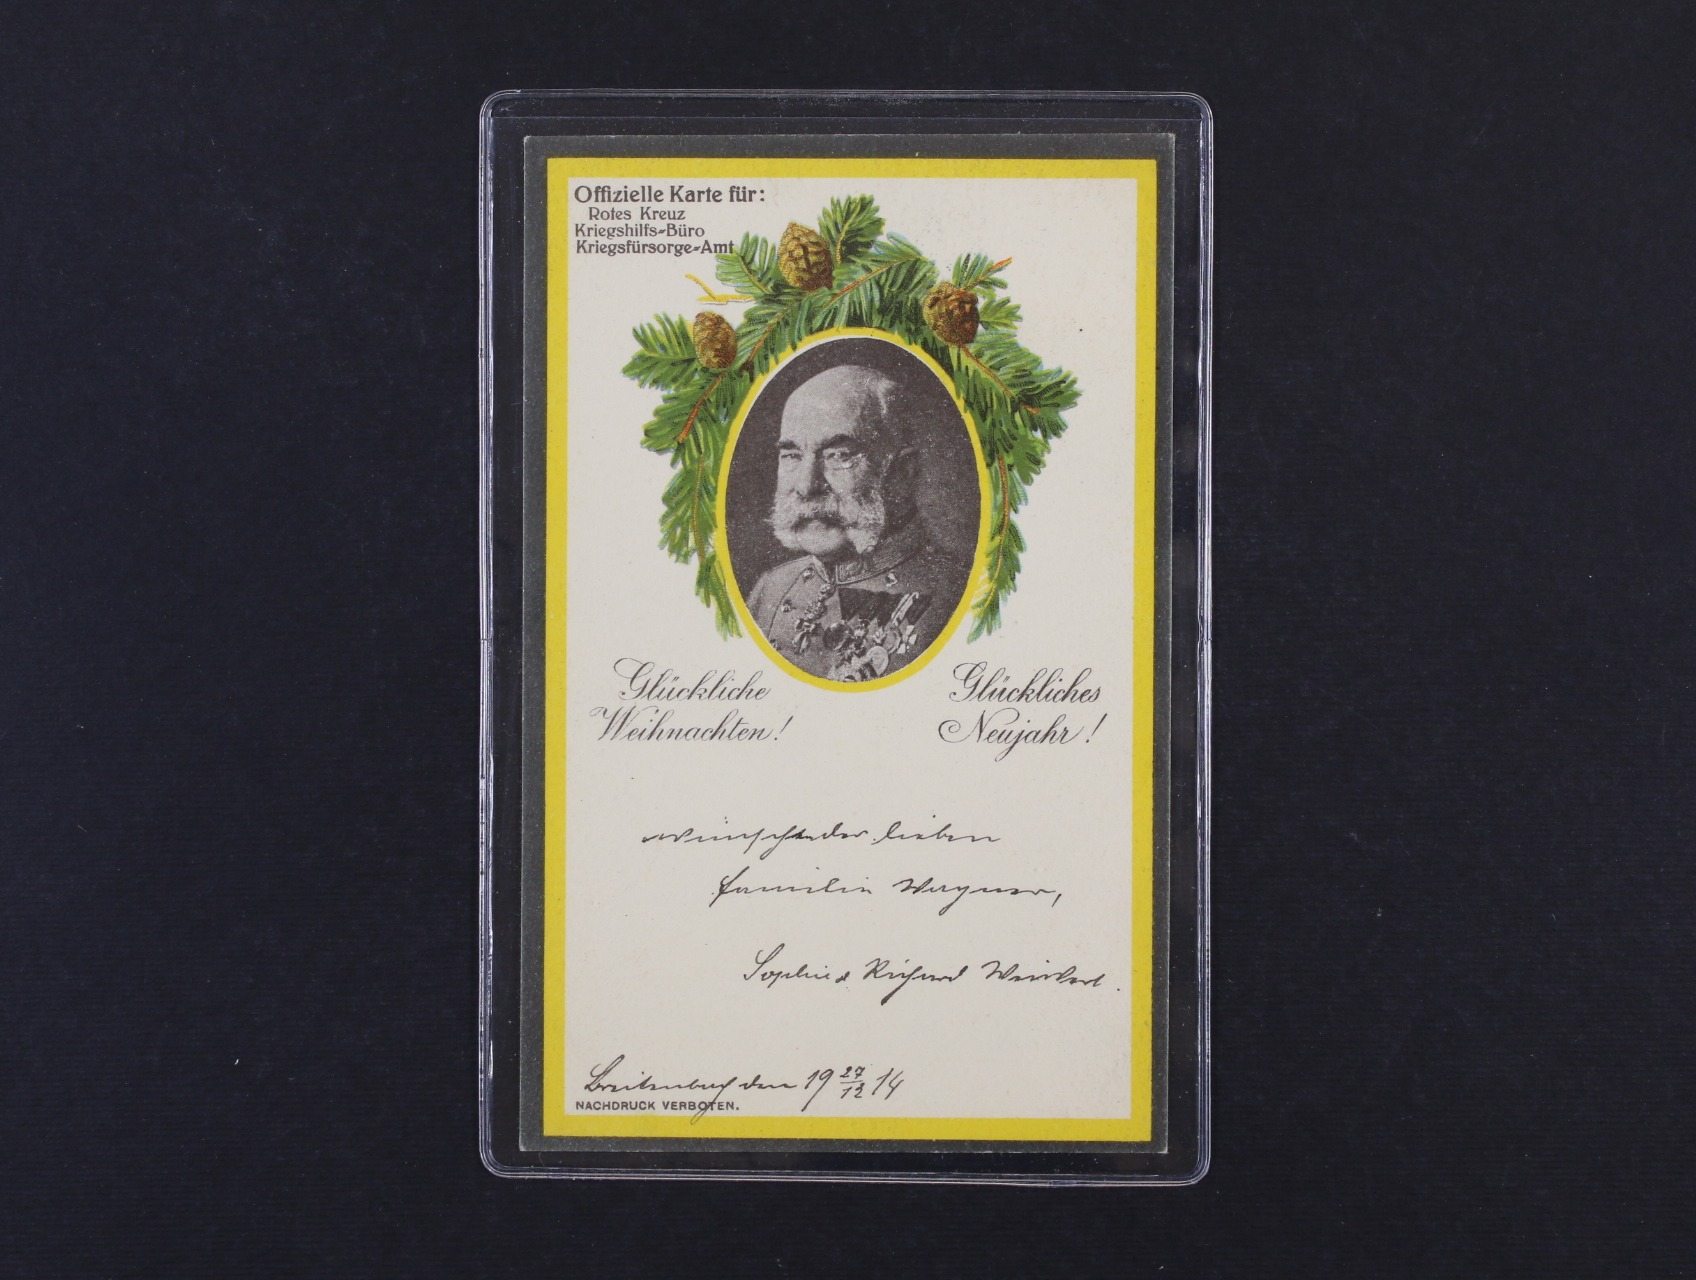 Offizielle Karte für:
Rotes Kreuz
Kriegshilfs-Büro
Kriegsfürsorge-Amt
Glückliche
Weihnachten!
Glückliches
Neujahr!
wünscht der lieben
Familie Wagner,
Sophie & Richard
Breitenbach den 19 27/12 14
NACHDRUCK VERBOTEN.